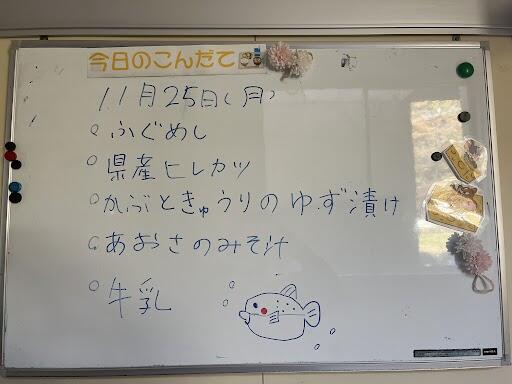 今日のこんだて
11月25日(月)
○ ふぐめし
○ 県産ヒレカツ
○ かぶときゅうりのゆず漬け
○ あおさのみそ汁
○ 牛乳